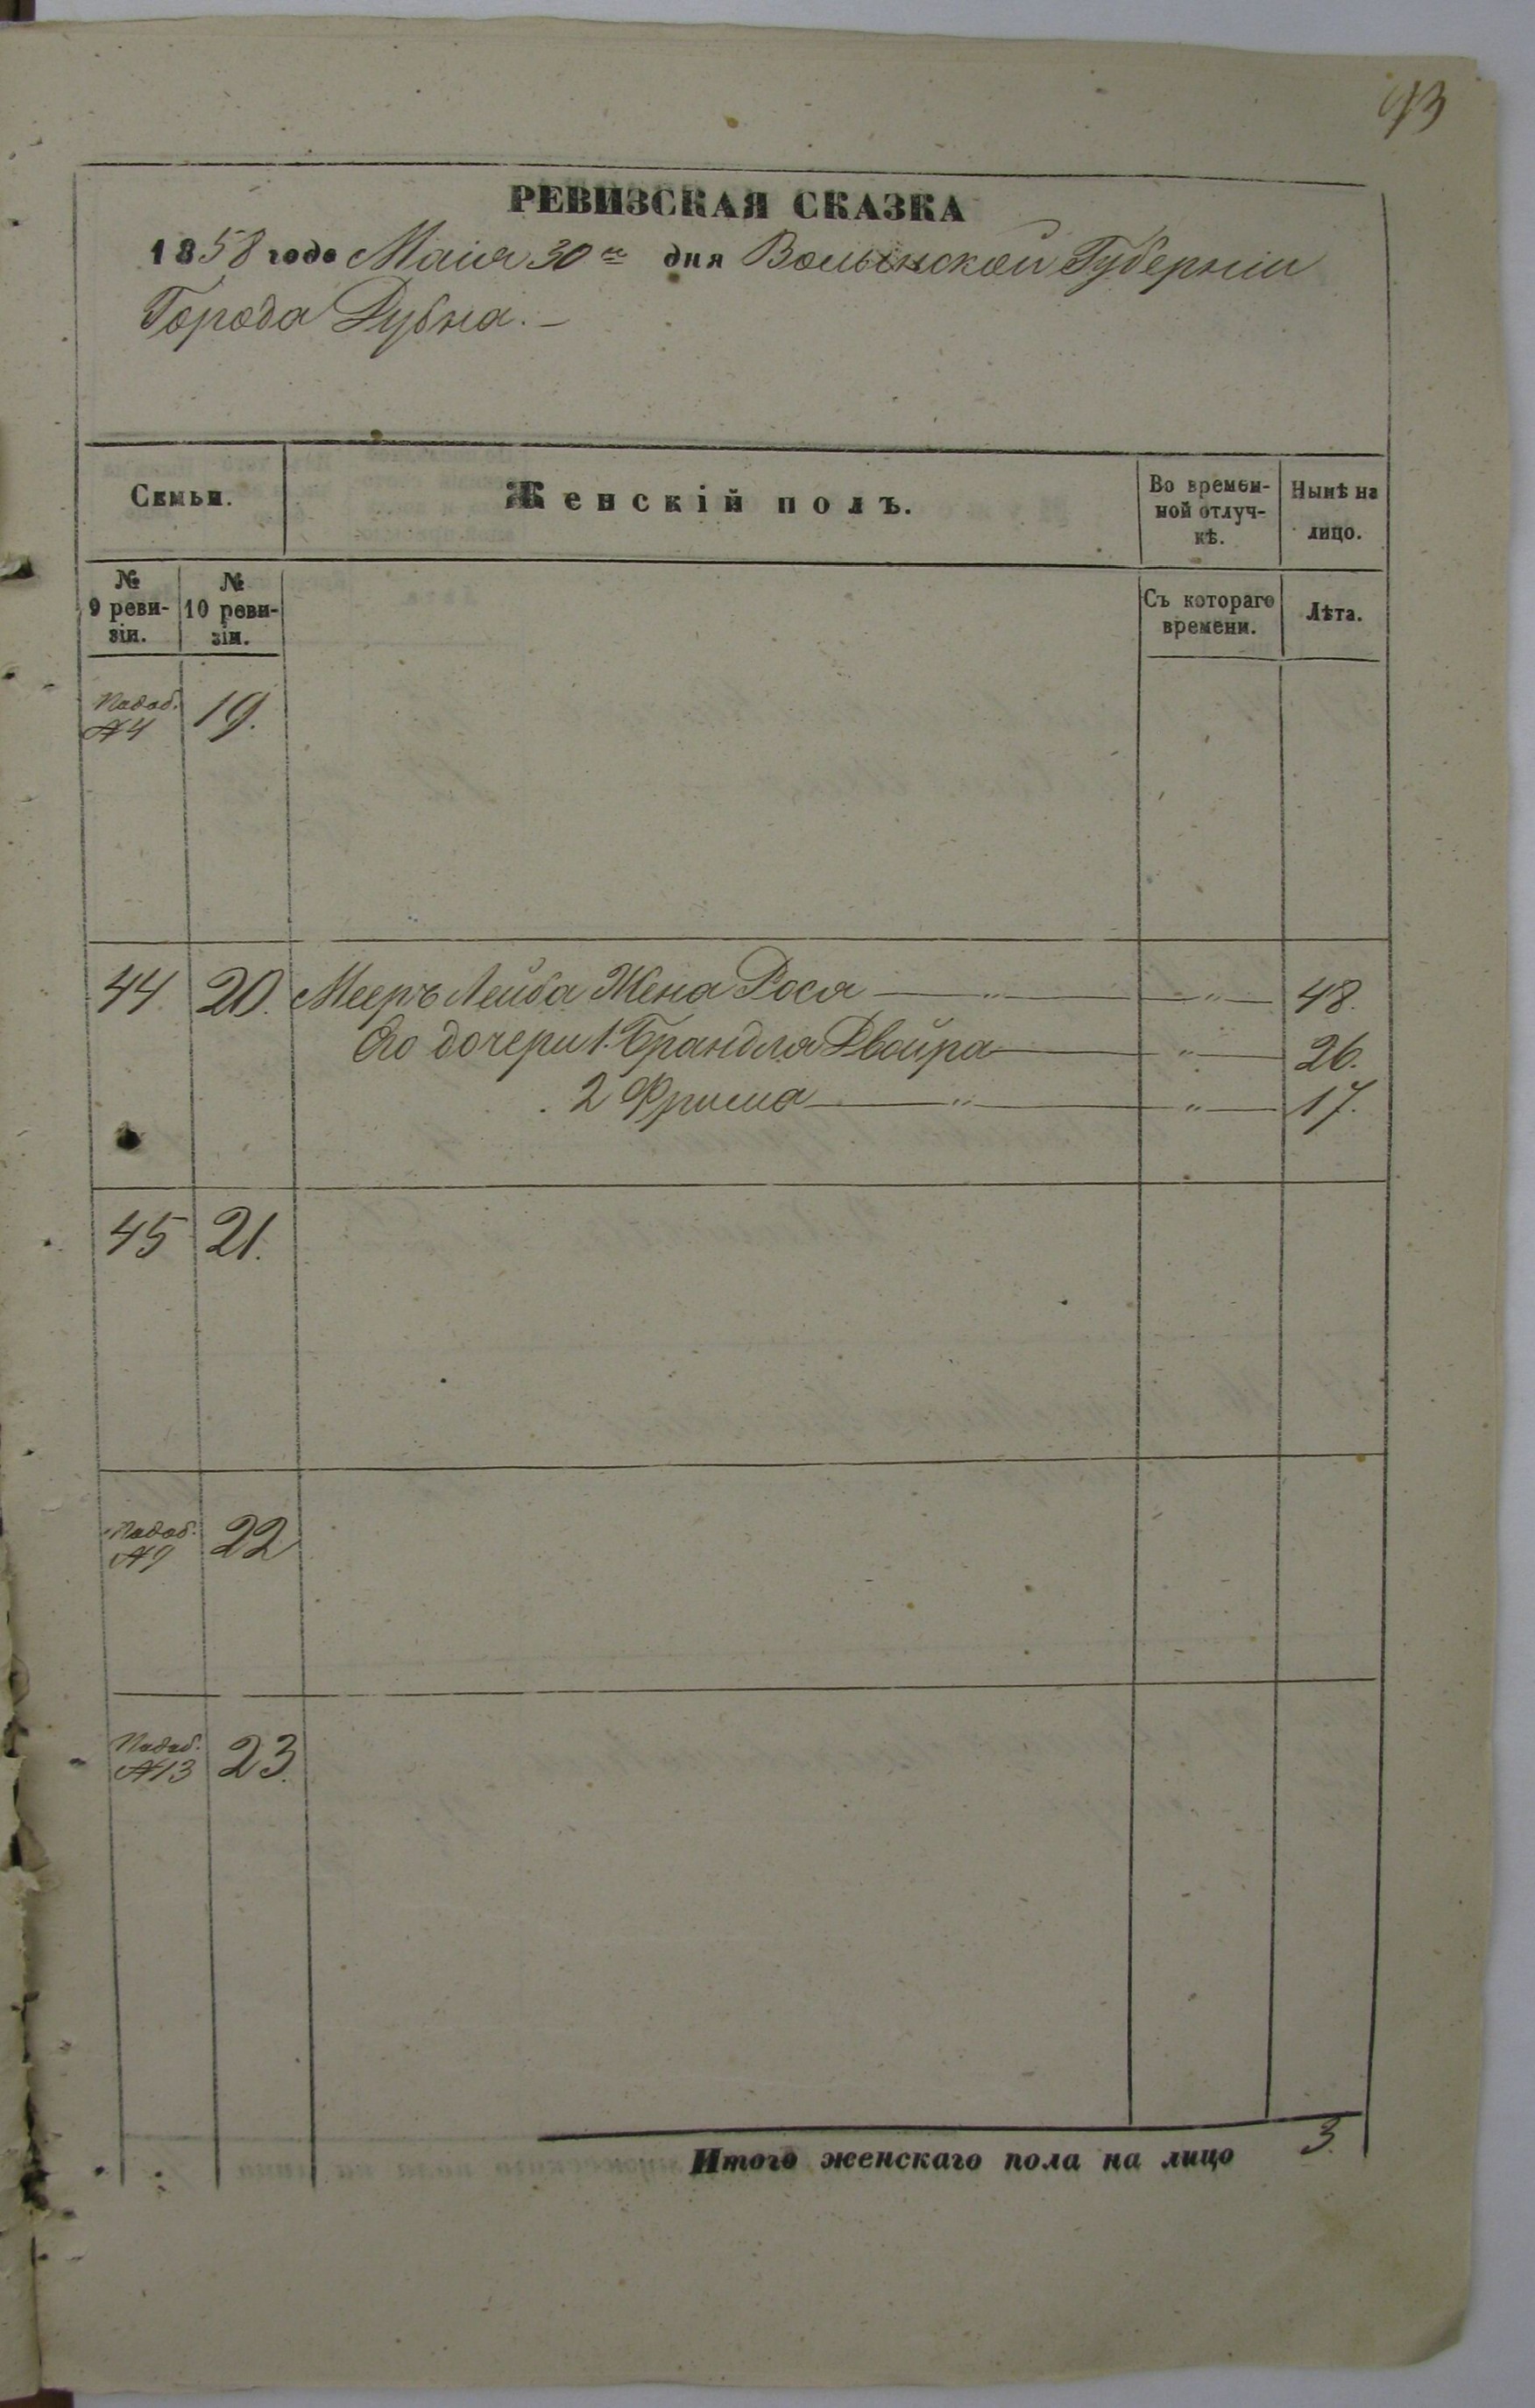 93
РЕВИЗСКАЯ СКАЗКА
1858 года Маія 30го дня Волынской Губерніи
Города Дубна. —
Семьи.
Женскій полъ.
Во времен-
ной отлуч-
кѣ.
Нынѣ на
лицо.
№
9 реви-
зіи.
№
10 реви-
зіи.
Съ котораго
времени.
Лѣта.
Подоб.
№4 19.
44 20. Мееръ Лейба Жена Рося — „ — „ — 48.
Его дочери 1. Брандля Двойра — „ — 26.
2 Фрима — „ — „ — 17.
45 21.
Подоб.
№9 22
Подоб.
№13 23.
Итого женскаго пола на лицо 3.